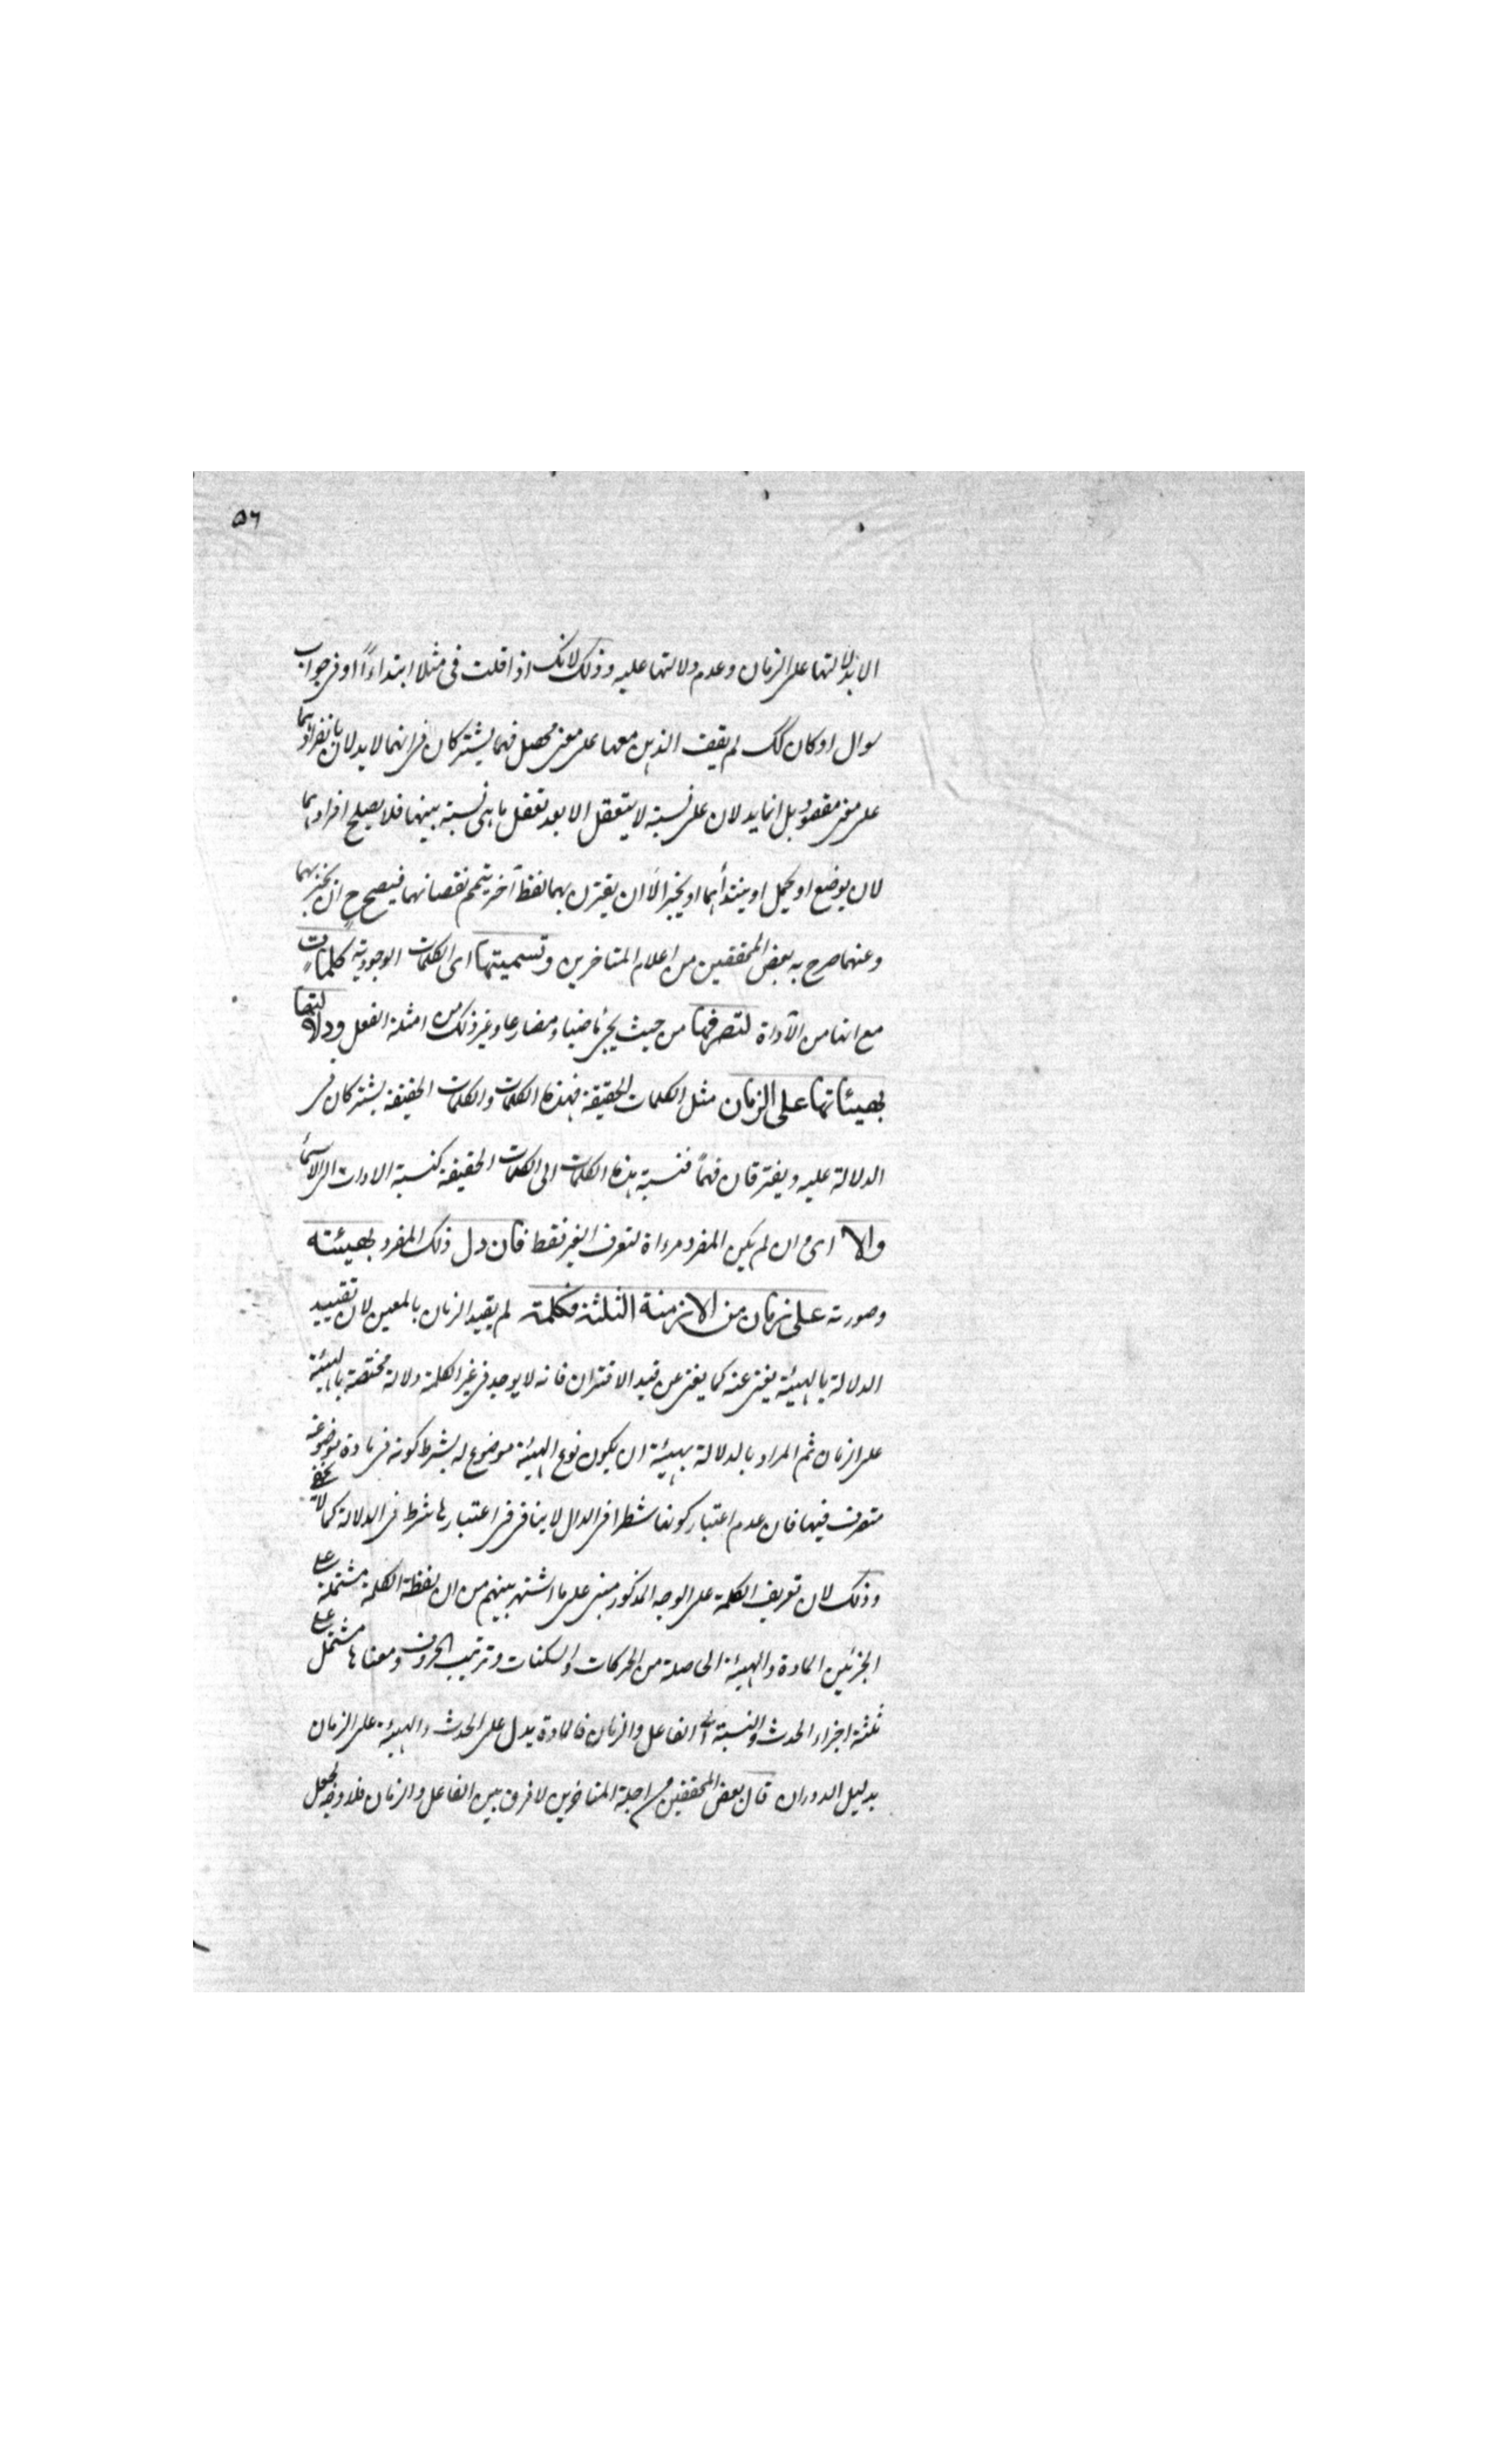 ٥٦
الا بدلالتها على الزمان وعدم دلالتها عليه وذلك لانك اذا قلت فى مثلا ابتداءً او فى جواب
سوال او كان كك لم يقف الذهن معها على معنى محصل فهما يشتركان فى انهما لا يدلان بانفرادهما
على معنى مقصود بل انما يدلان على نسبة لا يتعقل الا بعد تعقل ما هى نسبة بينهما فلا يصلح افرادهما
لان يوضع او يحمل او يبتدأ بهما او يخبر الا ان يقترن بهما لفظ آخر يتمم نقصانهما فيصح ح ان يخبر بهما
وعنهما صرح به بعض المحققين من اعلام المتاخرين وتسميتها اى الكلمات الوجودية كلمات
مع انها من الاداة لتصرفها من حيث يجئ ماضيا ومضارعا وغير ذلك من امثلة الفعل ودلالتها
بهيئاتها على الزمان مثل الكلمات الحقيقة فهذه الكلمات والكلمات الحقيقة يشتركان فى
الدلالة عليه ويفترقان فهماً فنسبة هذه الكلمات الى الكلمات الحقيقة كنسبة الادات الى الاسماء
والا اى وان لم يكن المفرد مرءاة لتعرف الغير فقط فان دل ذلك المفرد بهيئته
وصورته على زمان من الازمنة الثلثة فكلمة لم يقيد الزمان بالمعين لان تقييد
الدلالة بالهيئة يغنى عنه كما يغنى عن قيد الاقتران فانه لا يوجد فى غير الكلمة دلالة مختصة بالهيئة
على الزمان ثم المراد بالدلالة بهيئة ان يكون نوع الهيئة موضوع له بشرط كونه فى مادة موضوعة
متصرف فيها فان عدم اعتبار كونها شطرا فى الدال لا ينافى فى اعتبارها شرط فى الدلالة كما لا يخفى
وذلك لان تعريف الكلمة على الوجه المذكور مبنى على ما اشتهر بينهم من ان لفظة الكلمة مشتملة على
الجزئين المادة والهيئة الحاصلة من الحركات والسكنات وترتيب الحروف ومعناها مشتمل على
ثلثة اجزاء الحدث والنسبة الى الفاعل والزمان فالمادة يدل على الحدث والهيئة على الزمان
بدليل الدوران قال بعض المحققين من اجلة المتاخرين لا فرق بين الفاعل والزمان فلا وجه لجعل